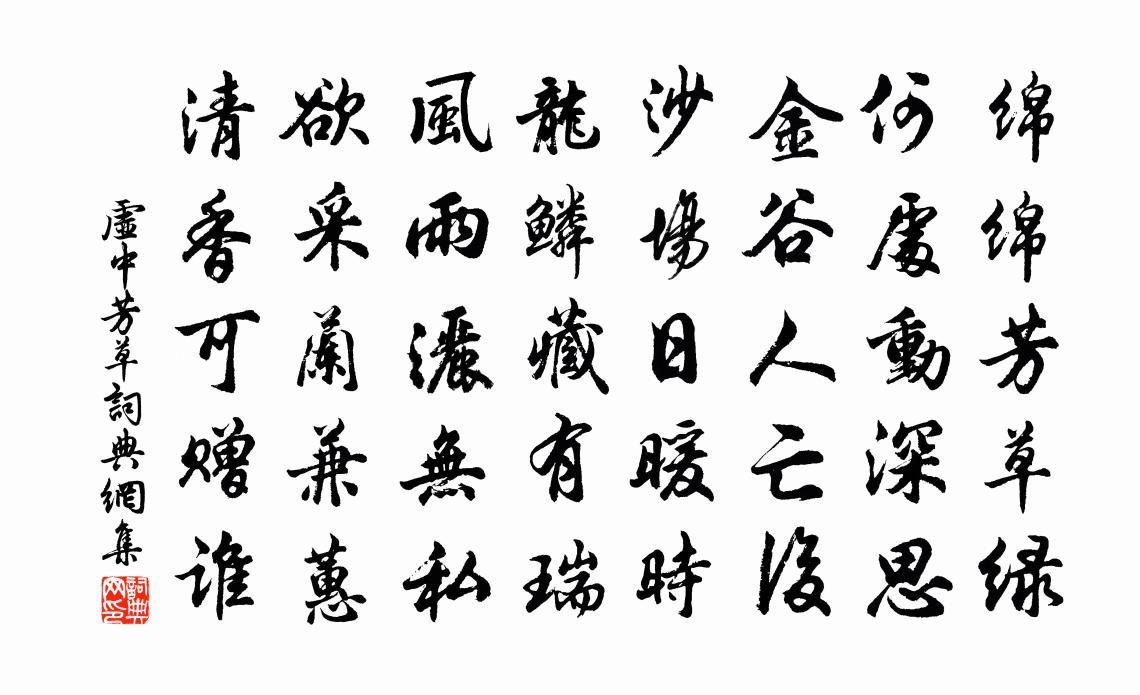 绵绵芳草绿
何處動深思
金谷人亡後
沙場日暖時
龍鱗藏有瑞
風雨灑無私
欲采蘭兼蕙
清香可赠誰
虛中芳草詞典網集
詞典网印